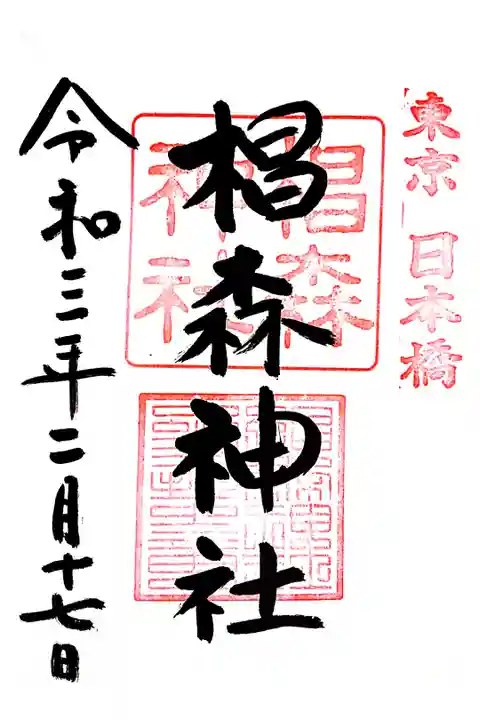 東京 日本橋
椙森
神社
椙森神社
令和三年二月十七日